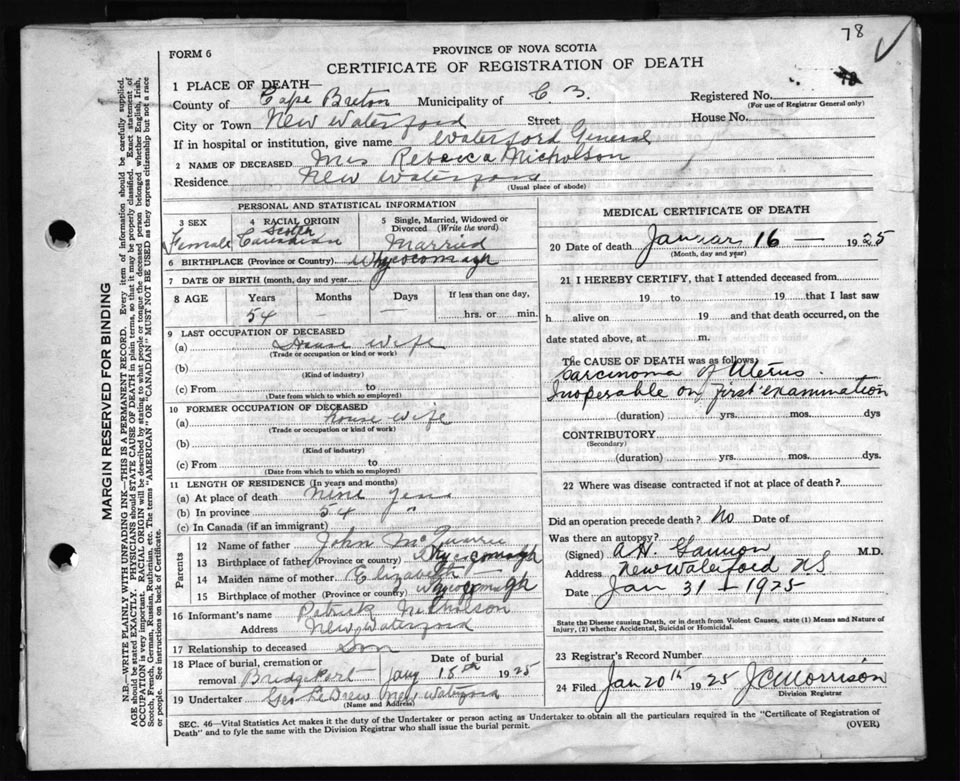 78 ✓
FORM 6
PROVINCE OF NOVA SCOTIA
CERTIFICATE OF REGISTRATION OF DEATH
1 PLACE OF DEATH—
County of Cape Breton Municipality of C. B. Registered No.
(For use of Registrar General only)
City or Town New Waterford Street House No.
If in hospital or institution, give name Waterford General
2 NAME OF DECEASED Mrs Rebecca Nicholson
Residence New Waterford
(Usual place of abode)
PERSONAL AND STATISTICAL INFORMATION
3 SEX Female
4 RACIAL ORIGIN Scotch Canadian
5 Single, Married, Widowed or Divorced (Write the word) Married
6 BIRTHPLACE (Province or Country) Whycocomagh
7 DATE OF BIRTH (month, day and year)
8 AGE Years Months Days If less than one day,
54 — — hrs. or min.
9 LAST OCCUPATION OF DECEASED
(a) House wife
(Trade or occupation or kind or work)
(b)
(Kind of industry)
(c) From to
(Date from which to which so employed)
10 FORMER OCCUPATION OF DECEASED
(a) house wife
(Trade or occupation or kind of work)
(b)
(Kind of industry)
(c) From to
(Date from which to which so employed)
11 LENGTH OF RESIDENCE (In years and months)
(a) At place of death nine years
(b) In province 54 "
(c) In Canada (if an immigrant)
Parents
12 Name of father John McQuarrie
13 Birthplace of father (Province or country) Whycocomagh
14 Maiden name of mother Elizabeth —
15 Birthplace of mother (Province or country) Whycocomagh
16 Informant's name Patrick Nicholson
Address New Waterford
17 Relationship to deceased Son
18 Place of burial, cremation or removal Bridgeport
Date of burial Jany 18th 1925
19 Undertaker Geo B Drew New Waterford
(Name and Address)
MEDICAL CERTIFICATE OF DEATH
20 Date of death January 16 — 1925
(Month, day and year)
21 I HEREBY CERTIFY, that I attended deceased from
19 to 19 that I last saw
h alive on 19 and that death occurred, on the
date stated above, at m.
The CAUSE OF DEATH was as follows:
Carcinoma of Uterus.
Inoperable on first examination
(duration) yrs. mos. dys
CONTRIBUTORY
(Secondary)
(duration) yrs. mos. dys.
22 Where was disease contracted if not at place of death?
Did an operation precede death? No Date of
Was there an autopsy?
(Signed) A.H. Gannon M.D.
Address New Waterford N.S
Date Jan 31 – 1925
State the Disease causing Death, or in death from Violent Causes, state (1) Means and Nature of
Injury, (2) whether Accidental, Suicidal or Homicidal.
23 Registrar's Record Number
24 Filed Jan 20th 1925 J C Morrison
Division Registrar
SEC. 46—Vital Statistics Act makes it the duty of the Undertaker or person acting as Undertaker to obtain all the particulars required in the "Certificate of Registration of
Death" and to fyle the same with the Division Registrar who shall issue the burial permit.
(OVER)
MARGIN RESERVED FOR BINDING
N.B.—WRITE PLAINLY WITH UNFADING INK—THIS IS A PERMANENT RECORD. Every item of information should be carefully supplied.
AGE should be stated EXACTLY. PHYSICIANS should STATE CAUSE OF DEATH in plain terms, so that it may be properly classified. Exact statement of
OCCUPATION is very important. RACIAL ORIGIN will be described by stating to what people or tongue the deceased person belonged whether English, Irish,
Scotch, French, German, Russian, Ruthenian, etc. The terms "AMERICAN" OR "CANADIAN" MUST NOT BE USED as they express citizenship but not a race
or people. See instructions on back of Certificate.